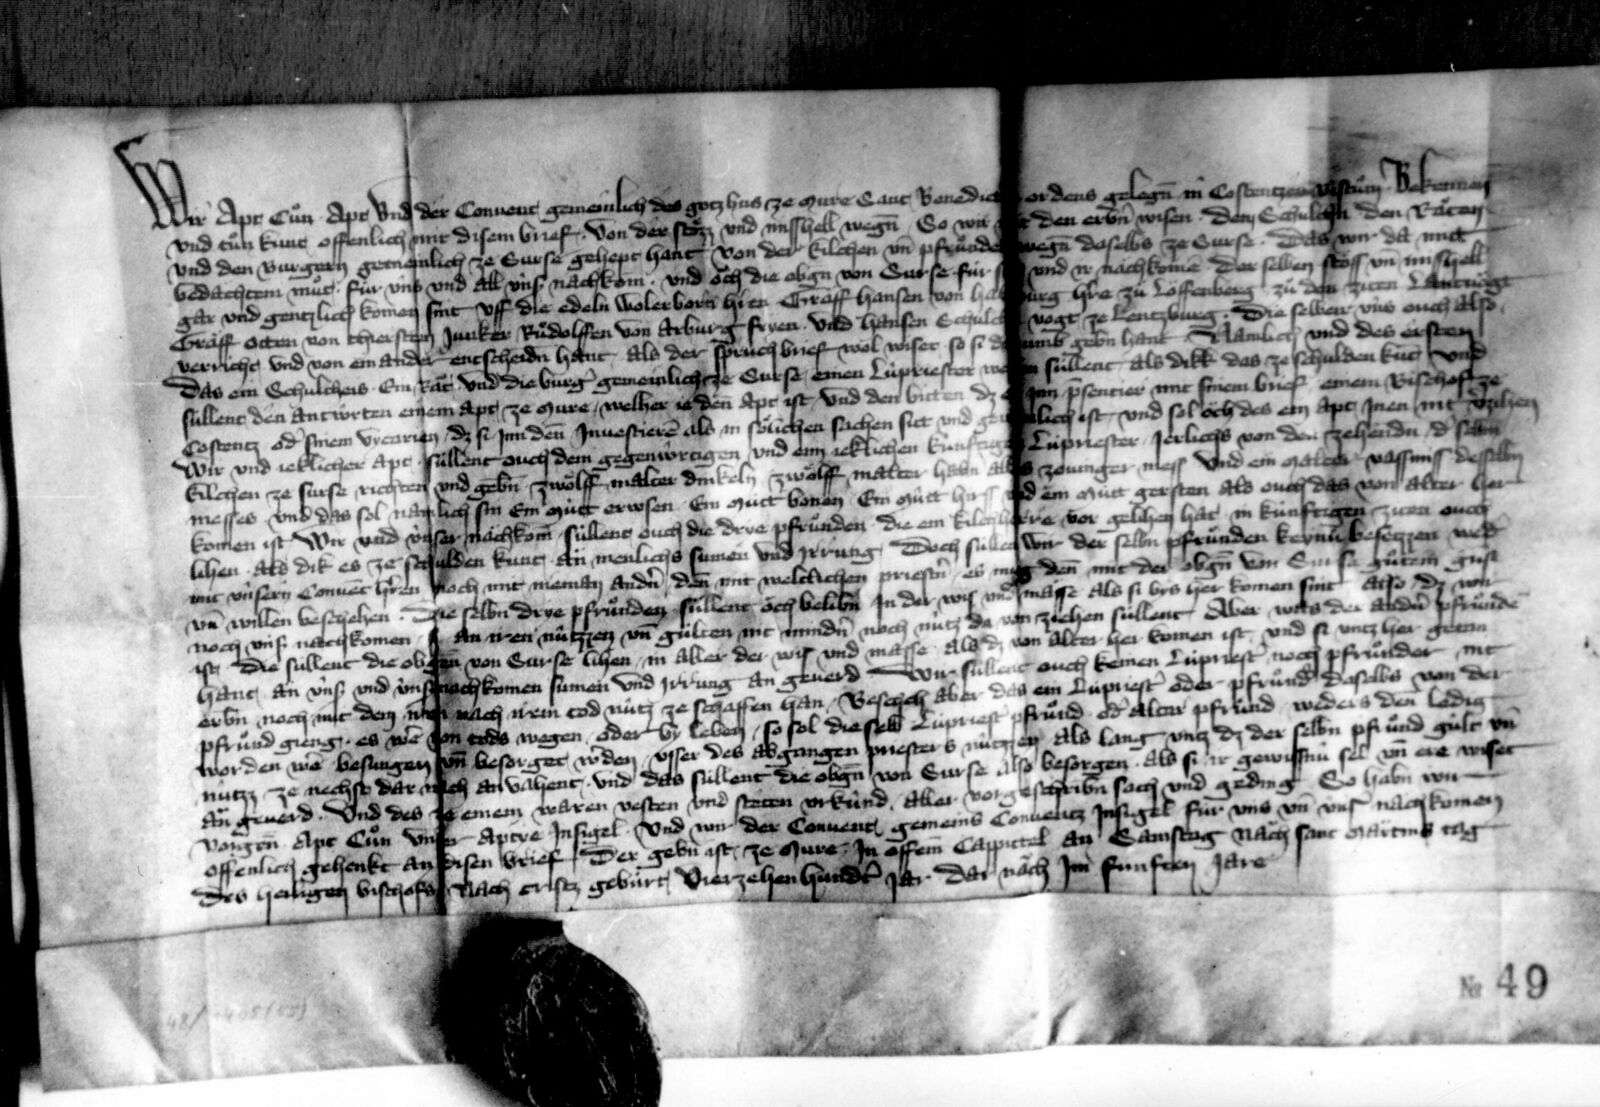 Wir Apt Cůn Apt Und der Convent gemeinlich des gotzhus ze Mure Sant Benedicten ordens gelegn̄ in Costentzer Bistům Bekennen
und tůn kunt offenlich mit disem brief Von der stözz und misshell wegn̄ So wir mit den erbn̄ wisen dem Schulthn̄ den Räten
und den Burgern gemeinlich ze Surse gehept hant von der kilchen un̄ pfrůnden wegn̄ daselbs ze Surse Das wir da mitt
bedachtem můt für uns und all ünsẜ nachkom̄ und öch die obgn̄ von Surse für si und ir nachkomē der selben stöss un̄ misshell
gar und gentzlich komen sint uff die edeln wolerborn hern Graff Hansen von Habspurg hr̄e zů Löffenberg zů den ziten Lantvögt
Graff Otten von Thierstein Junker Růdolffen von Arburg fryen und Hansen Schulth vogt ze Lentzburg Die selben uns ouch also
verricht und von ein ander entscheidn̄ hant als der spruch brief wol wiset so si dar umb gebn̄ hant Nämlich und des ersten
Das ein Schultheis Ein Rät und die burgͬ gemeinlich ze Surse einen Lüpriester welen süllent als dikk des ze schulden kūt und
süllent den antwrten einem apt ze Mure welher ie den̄ Apt ist und den bitten dz er inn p̄sentier mit sinem brief einem Bischof ze
Costentz odͬ sinem vycarien dz si inn den̄ Investierē als in sölichen sachen sitt und gewonlich ist und sol öch des ein apt Inen nit v̄zihen
Wir und ieklicher apt süllent ouch dem gegenẘrtigen und eim ieklichen künftigen Lüpriester Jerlichs von den zehendn̄ dͬ selbn̄
kilchen ze surse richten und gebn̄ zwölff malter dinkeln zwölff malter habn̄ alles zovinger mess Und ein malter vassmis desselbn̄
messes und das sol nämlich sin Ein mütt erwsen Ein mütt bonon Ein mütt hirs und ein mütt gersten als ouch das von alter her
komen ist Wir und ünser nachkom̄ süllent ouch die drye pfrůnden die ein kilchherre vor gelihen hat in künftigen ziten ouch
lihen als dik es ze schulden kunt än menlichs sumen und irrung Doch süllen wir der selbn̄ pfrůnden keynū besetzzen wedͬ
mit ünsern Convēt hr̄en noch mit nieman andn̄ den̄ mit weltlichen priestn̄ es mug den̄ mit der obgn̄ von Surse gůtem gust
un̄ willen beschehen Die selbn̄ drye pfrůnden süllent öch belibn̄ In der wis und masse als si bis her komen sint also dz wir
noch ünsẜ nachkomen an iren nützzen un̄ gülten nit mindn̄ noch nutz da von ziehen süllent Aber was der andn̄ pfrůndē
ist Die süllent die obgn̄ von Surse lihen in aller der wis und masse als dz von alter her komen ist und si untz her getan
hant än ünsẜ und ünsẜ nachkomen sumen und irrung an geverd Wir süllent ouch keinen Lüpriestͬ noch pfrůnder nit
erbn̄ noch mit dem iren nach irem tod nütz ze schaffen han Beschech aber das ein Lüpriestͬ oder pfrůndͬ daselbs von der
pfrůnd gieng es wē von tods wegen oder by leben so sol die selb Lüpriestͬ pfrůnd odͬ alter pfrůnd weders den̄ ledig
worden wē besungen un̄ besorget ẘden usser des abgangen priesters nützzen als lang untz dz der selbn̄ pfrůnd gült un̄
nützz ze nechst dar nach an vahent und das süllent die obgn̄ von Surse also besorgen als si ir gewissnü sel un̄ ere wiset
än geverd Und des ze einem waren vesten und steten urkünd aller vorgeschribn̄ sach und geding So habn̄ wir
vorgen̄ Apt Cůn unser Aptye Insigel Und wir der Convent gemeins Conventz Insigel für uns un̄ unsẜ nachkomen
offenlich gehenkt an disen brief Der gebn̄ ist ze Mure In offem Cappittel an Samstag nach sant Martins tag
des heiligen bischofs Nach cristz gebürt Vierzehenhundͬt jar dar näch Im fünften Jare
48/1405(55)
№ 49